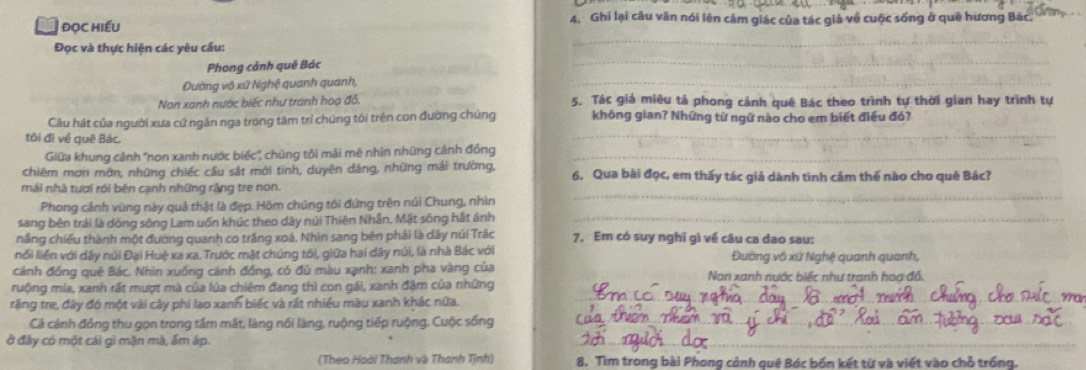 ĐỌC HIỂU
Đọc và thực hiện các yêu cầu:
Phong cảnh quê Bác
Đường vô xứ Nghệ quanh quanh,
Non xanh nước biếc như tranh hoạ đồ.
Câu hát của người xưa cứ ngân nga trong tâm trí chúng tôi trên con đường chúng
tôi đi về quê Bác.
Giữa khung cảnh "non xanh nước biếc", chúng tôi mải mê nhìn những cánh đồng
chiêm mơn mởn, những chiếc cầu sắt mới tinh, duyên dáng, những mái trường,
mái nhà tươi rói bên cạnh những rặng tre non.
Phong cảnh vùng này quả thật là đẹp. Hôm chúng tôi đứng trên núi Chung, nhìn
sang bên trái là dòng sông Lam uốn khúc theo dãy núi Thiên Nhẫn. Mặt sông hắt ánh
nắng chiếu thành một đường quanh co trắng xoá. Nhìn sang bên phải là dãy núi Trác
nối liền với dãy núi Đại Huệ xa xa. Trước mặt chúng tôi, giữa hai dãy núi, là nhà Bác với
cánh đồng quê Bác. Nhìn xuống cánh đồng, có đủ màu xanh: xanh pha vàng của
ruộng mía, xanh rất mượt mà của lúa chiêm đang thì con gái, xanh đậm của những
rặng tre, đây đó một vài cây phi lao xanh biếc và rất nhiều màu xanh khác nữa.
Cả cánh đồng thu gọn trong tầm mắt, làng nối làng, ruộng tiếp ruộng. Cuộc sống
ở đây có một cái gì mặn mà, ấm áp.
(Theo Hoài Thanh và Thanh Tịnh)
4. Ghi lại câu văn nói lên cảm giác của tác giả về cuộc sống ở quê hương Bác.
5. Tác giả miêu tả phong cảnh quê Bác theo trình tự thời gian hay trình tự
không gian? Những từ ngữ nào cho em biết điều đó?
6. Qua bài đọc, em thấy tác giả dành tình cảm thế nào cho quê Bác?
7. Em có suy nghĩ gì về câu ca dao sau:
Đường vô xứ Nghệ quanh quanh,
Non xanh nước biếc như tranh hoạ đồ.
Em có suy nghĩ đây là một minh chứng cho
của thiên nhiên và ý chí, để lại ấn tượng sâu sắc
tới người đọc
8. Tìm trong bài Phong cảnh quê Bác bốn kết từ và viết vào chỗ trống.